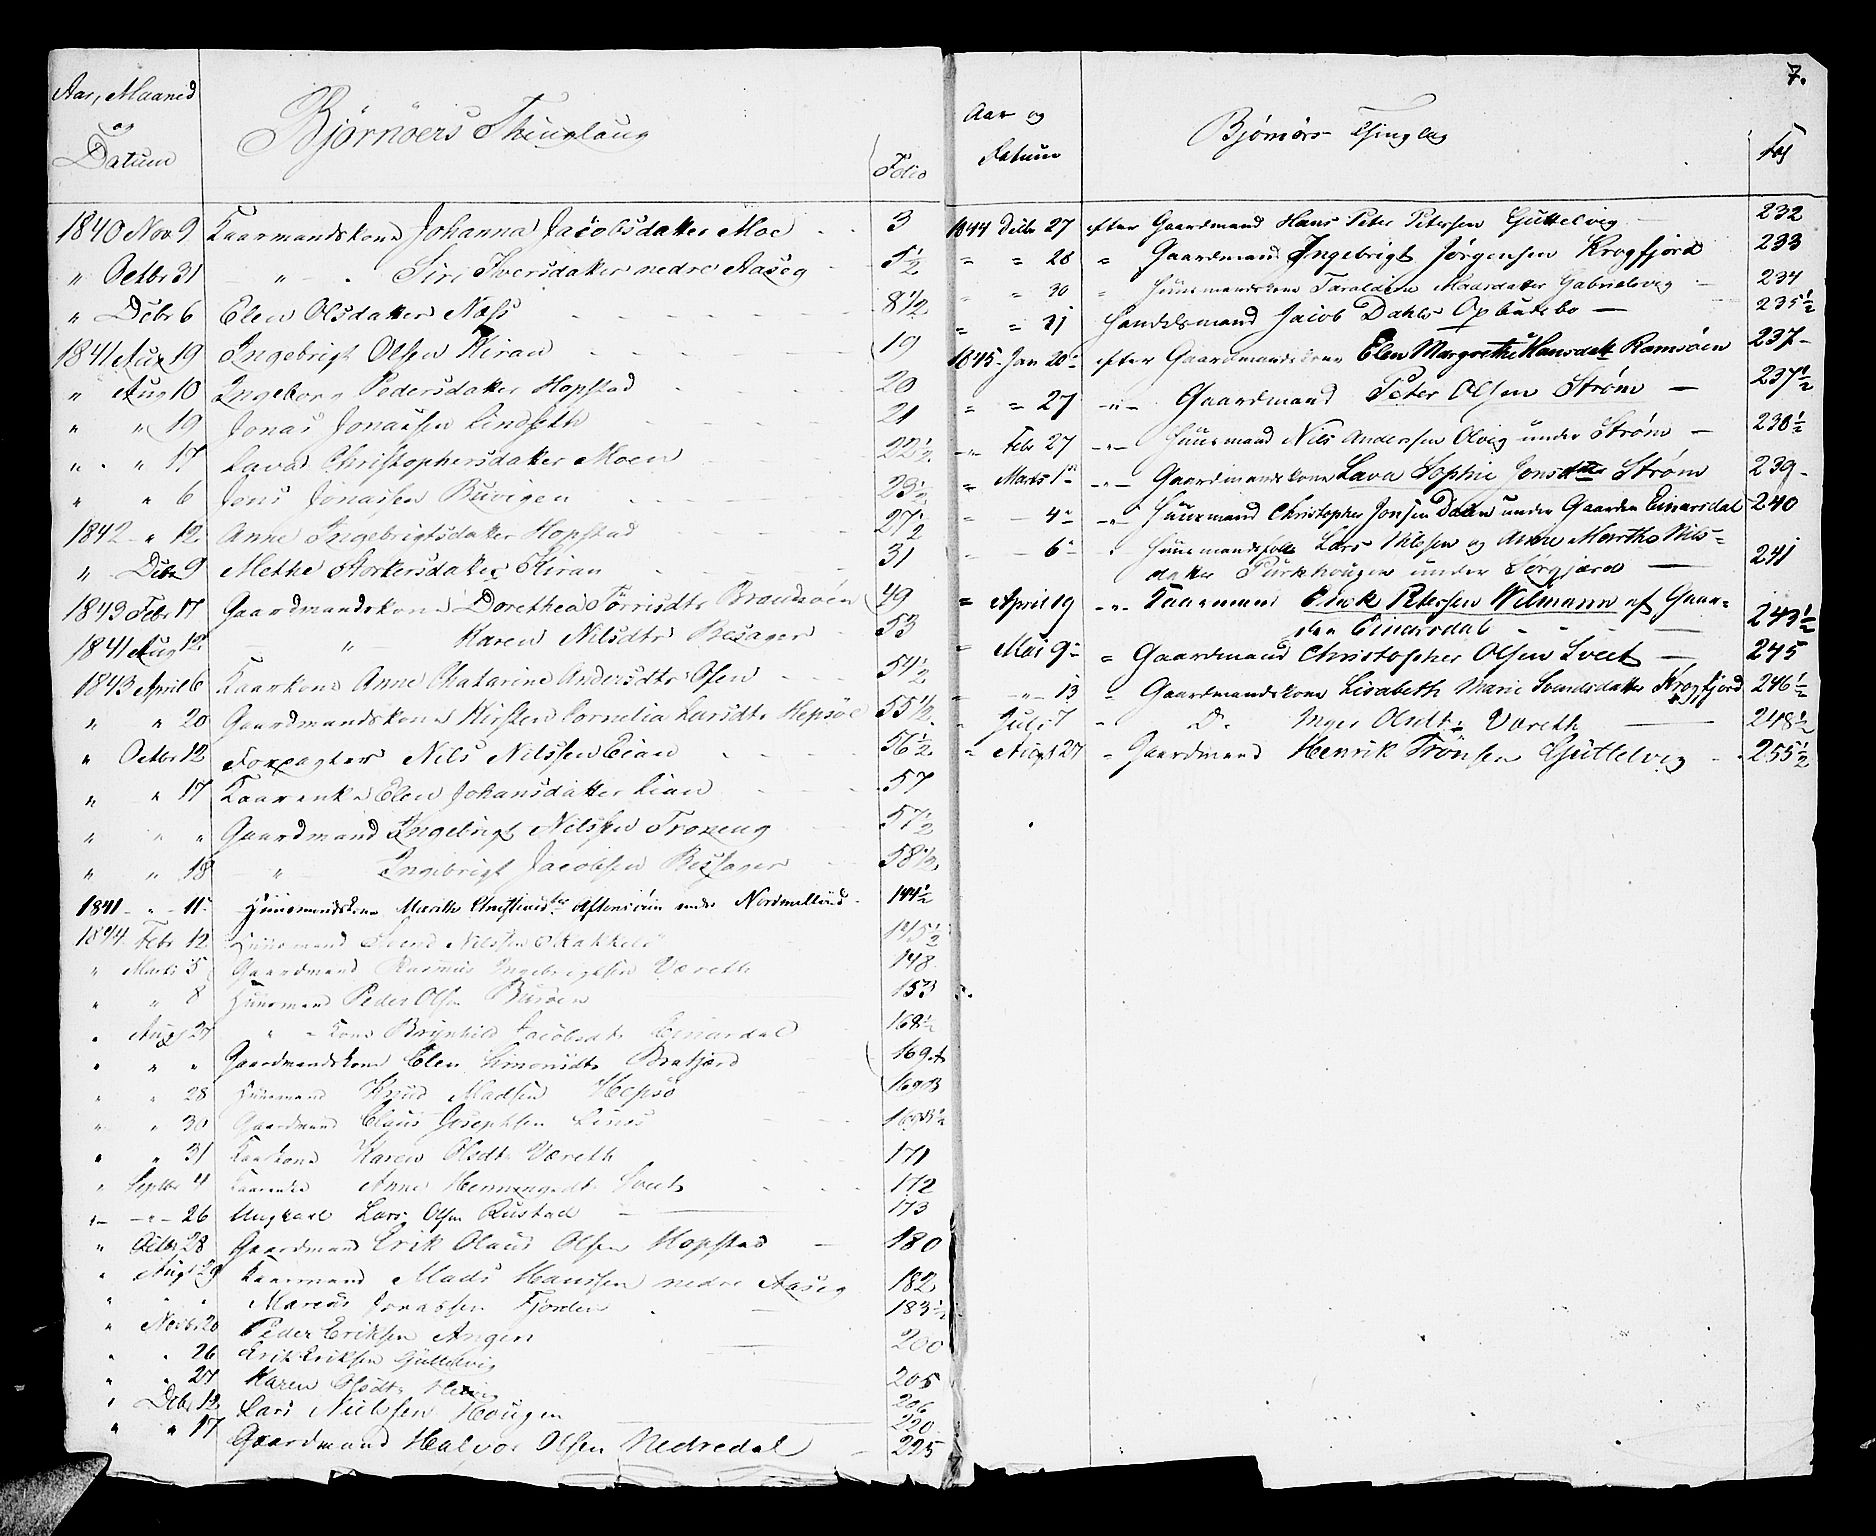 Aar, Maaned
og
Datum
Bjørnøers Thinglaug
Folio
1840 Nov 9 Kaarmandskone Johanna Jacobsdatter Moe 3
" Octbr 31 " Siri Iversdatter nedre Aaseg 5 1/2
" Debr 6 Elen Olsdatter Næss 8 1/2
1841 Aug 19 Ingebrigt Olsen Kiran 19
" Aug 10 Ingeborg Pedersdatter Hopstad 20
" " 19 Jonas Jonassen Lindseth 21
" " 17 Lava Christophersdatter Moen 22 1/2
" " 6 Jens Jonassen Buvigen 23 1/2
1842 " 12 Anne Ingebrigtsdatter Hopstad 27 1/2
" Debr 9 Methe Storkersdatter Kiran 31
1843 Febr 17 Gaardmandskone Dorethea Tørrisdtr Brandsøen 49
1841 Aug 12 " Karen Nilsdtr Besager 53
1843 April 6 Kaarkone Anne Chatarine Andersdtr Osen 54 1/2
" " 20 Gaardmandskone Kirsten Cornelia Larsdtr Hepsøe 55 1/2
" Octbr 12 Forpagter Nils Nilssen Eian 56 1/2
" " 17 Kaarenke Elen Johansdatter Lian 57
" " " Gaardmand Ingebrigt Nilssen Troxeng 57 1/2
" " 18 " Ingebrigt Jacobsen Bessager 58 1/2
1841 " 11 Huusmandskone Marith under 144 1/2
1844 Febr 12 Huusmand Nilssen 145 1/2
" Marts 5 Gaardmand Rasmus Ingebrigtsen Væreth 148
" " 8 Huusmand Peder Olsen Burøen 153
" Augt 27 " Kone Brynhild Jacobsdtr Einarsdal 168 1/2
" " " Gaardmandskone Elen Simonsdtr Bratfjærd 169 A
" " 28 Huusmand Knud Madsen Hepsø 169 B
" " 30 Gaardmand Claus Josephsen Sines 169 B 1/2
" " 31 Kaarkone Karen Olsdtr Væreth 171
" Septbr 4 Kaarenke Anne Henningsdtr Sveet 172
" " 26 Ungkarl Lars Olsen Rustad 173
" Octbr 28 Gaardmand Erik Olaus Olsen Hopstad 180
" Augt 29 Kaarmand Mads Hanssen nedre Aaseg 182
" " " Marcus Jonassen Fjorden 183 1/2
" Novbr 20 Peder Eriksen Angen 200
" " 26 Erik Eriksen Guttelvig
" " 27 Karen Olsdtr 205
" Debr 12 Lars Nielsen Hougen 206
220
" " 17 Gaardmand Halvor Olsen Nedredal 225
7.
Aar og
Datum
Bjørnørs Thinglag
Fol
1844 Debr 27 efter Gaardmand Hans Peter Petersen Guttelvig 232
" " 28 " Gaardmand Ingebrigt Jørgensen Krogfjord 233
" " 30 " Huusmandskone Madsdatter Gabrielsvig 234
" " 31 Handelsmand Jacob Dahls Opbudsbo 235 1/2
1845 Jan 20 efter Gaardmandskone Elen Margrethe Hansdatt Ramsøen 237
" " 27 " Gaardmand Peter Olsen Strøm 237 1/2
" Febr 27 " Huusmand Nils Anderssen Olvig under Strøm 238 1/2
" Marts 1 " Gaardmandskone Lava Sophie Jonsdtr Strøm 239
" " 4 " Huusmand Christopher Jonsen Daln under Gaarden Einarsdal 240
" " 6 " Huusmandsfolk Lars Nilsen og Anne Martha Nils=
datter under Sørgjærd 241
" April 19 " Kaarmand Erick Petersen Wilmann af Gaar=
den Einarsdal 243 1/2
" Mai 9 " Gaardmand Christopher Olsen Sveet 245
" " 13 " Gaardmandskone Lisabeth Marie Svendsdatter Krogfjord 246 1/2
" Juli 7 " Do Inger Olsdtr Væreth 248 1/2
" August 27 " Gaardmand Henrik Trønsen Guttelvig 255 1/2